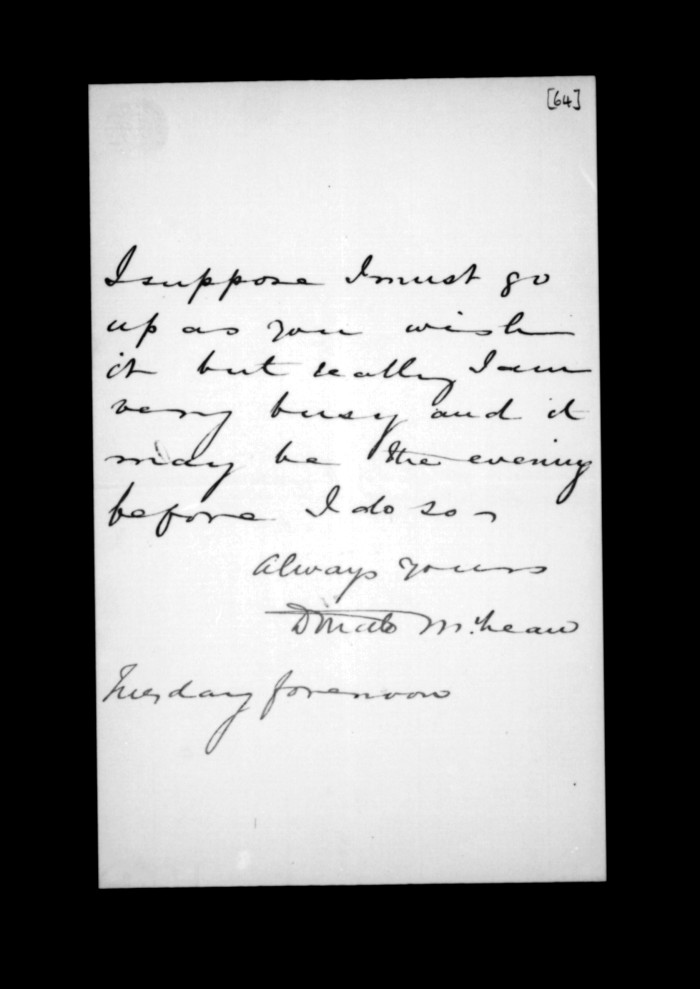 [64]
I suppose I must go
up as you wish
it but really I am
very busy and it
may be the evening
before I do so -
Always yours
McLean
Tuesday forenoon